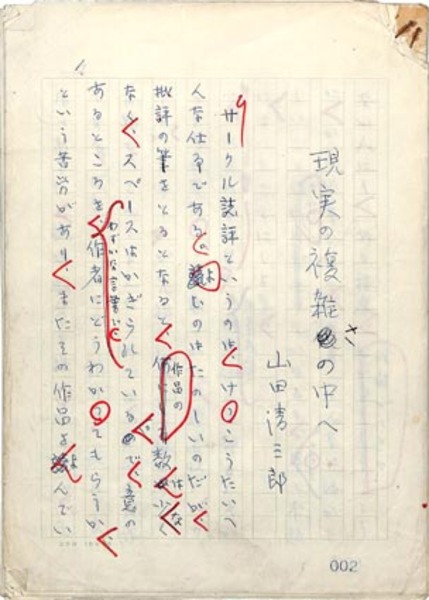 現実の複雑さの中へ
山田清三郎
サークル誌評というのは、けっこうたいへ
んな仕事である。よむのはたのしいのだが、
批評の筆をとるとなると、作品の数は少く
なく、スペースはかぎられているので、意の
あるところを、作者にどうわかってもらうか、
わずいな言葉で
という苦労があり、またその作品をよんでい
002